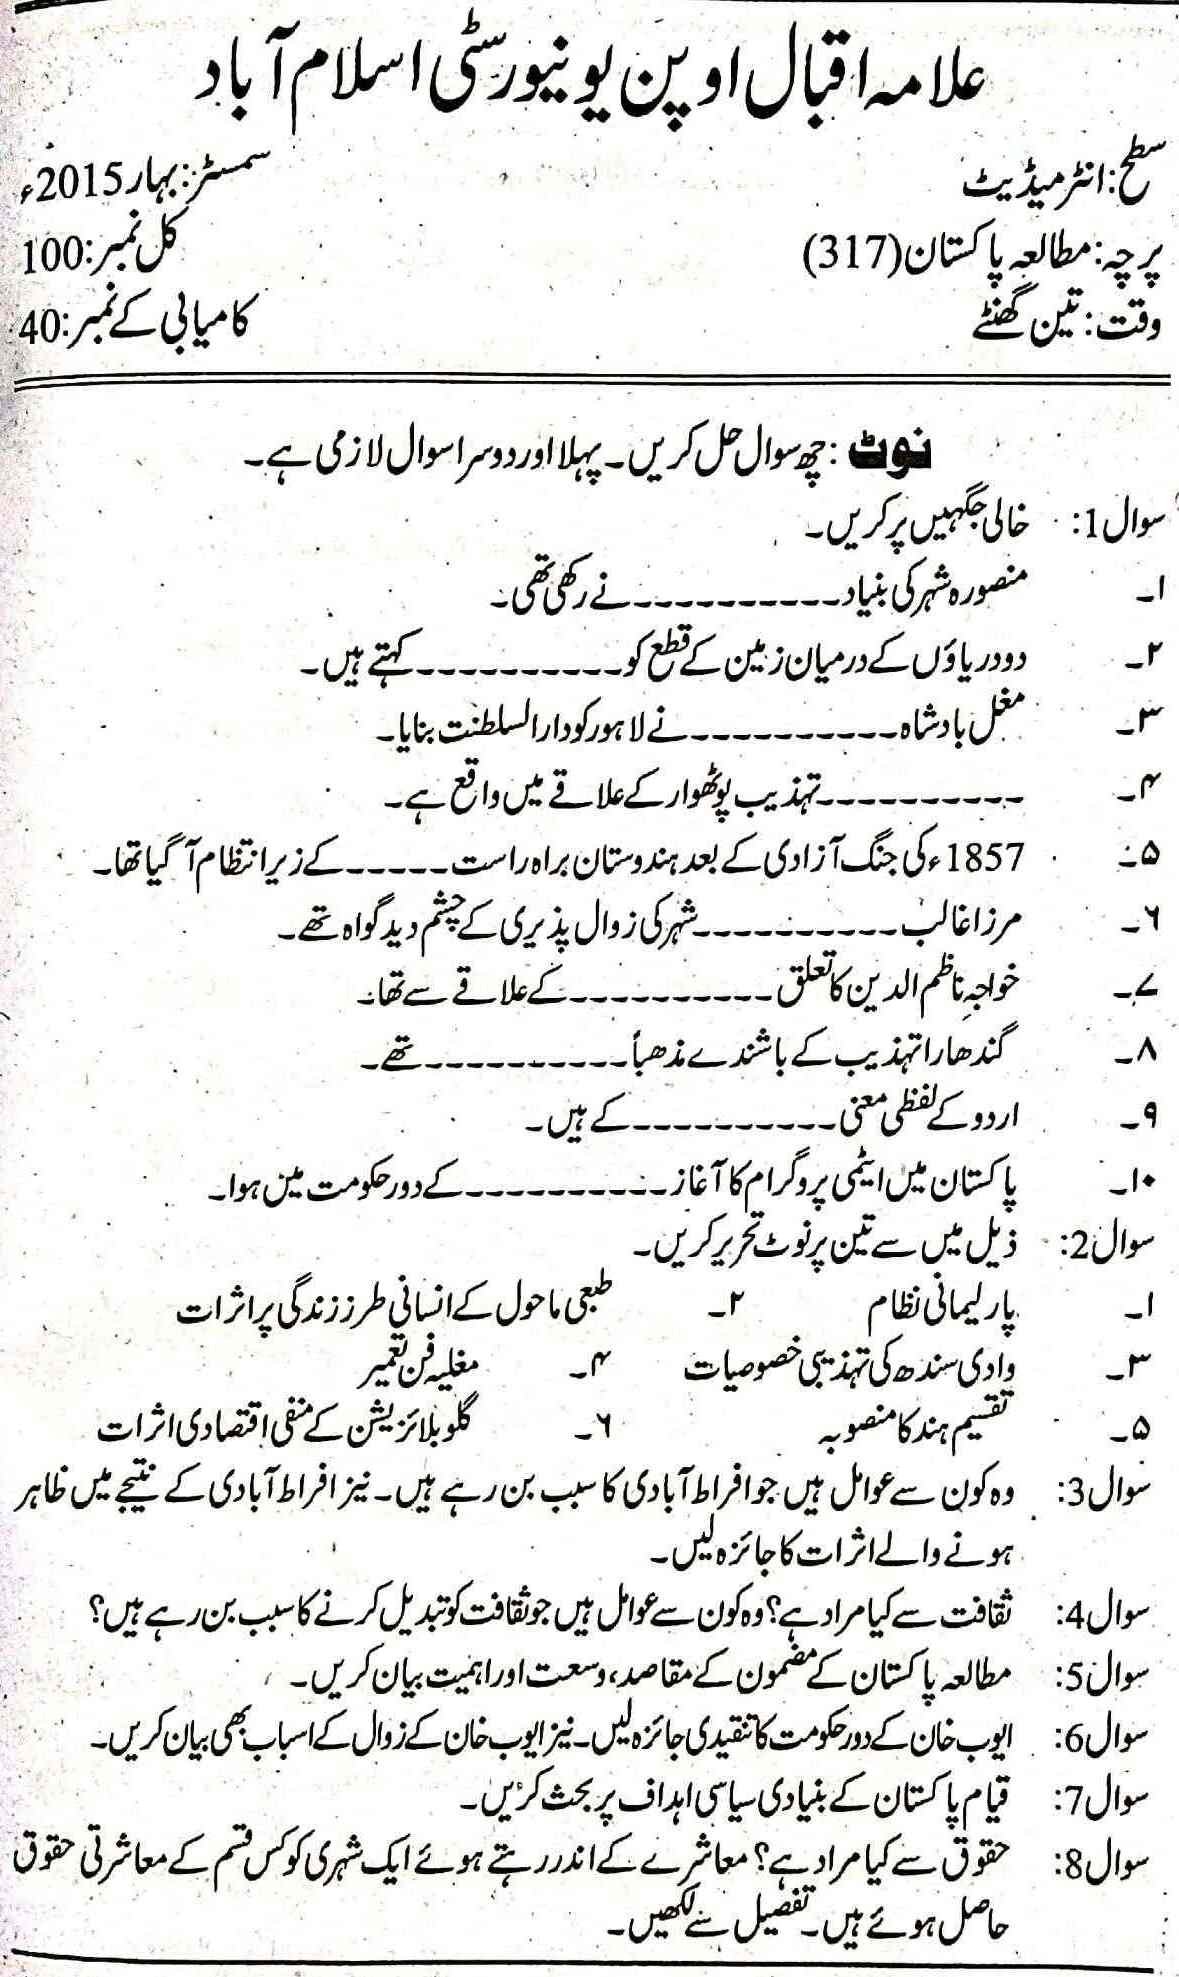 علامہ اقبال اوپن یونیورسٹی اسلام آباد
سطح: انٹرمیڈیٹ سمسٹر: بہار 2015ء
پرچہ: مطالعہ پاکستان (317) کل نمبر: 100
وقت: تین گھنٹے کامیابی کے نمبر: 40
نوٹ: چھ سوال حل کریں۔ پہلا اور دوسرا سوال لازمی ہے۔
سوال 1: خالی جگہیں پر کریں۔
۱۔ منصورہ شہر کی بنیاد ---------- نے رکھی تھی۔
۲۔ دو دریاؤں کے درمیان زمین کے قطع کو ---------- کہتے ہیں۔
۳۔ مغل بادشاہ ---------- نے لاہور کو دارالسلطنت بنایا۔
۴۔ ---------- تہذیب پوٹھوار کے علاقے میں واقع ہے۔
۵۔ 1857ء کی جنگ آزادی کے بعد ہندوستان براہ راست ----- کے زیر انتظام آ گیا تھا۔
۶۔ مرزا غالب ---------- شہر کی زوال پذیری کے چشم دید گواہ تھے۔
۷۔ خواجہ ناظم الدین کا تعلق ---------- کے علاقے سے تھا۔
۸۔ گندھارا تہذیب کے باشندے مذھباً ---------- تھے۔
۹۔ اردو کے لفظی معنی ---------- کے ہیں۔
۱۰۔ پاکستان میں ایٹمی پروگرام کا آغاز ---------- کے دور حکومت میں ہوا۔
سوال 2: ذیل میں سے تین پر نوٹ تحریر کریں۔
۱۔ پارلیمانی نظام ۲۔ طبعی ماحول کے انسانی طرز زندگی پر اثرات
۳۔ وادی سندھ کی تہذیبی خصوصیات ۴۔ مغلیہ فن تعمیر
۵۔ تقسیم ہند کا منصوبہ ۶۔ گلوبلائزیشن کے منفی اقتصادی اثرات
سوال 3: وہ کون سے عوامل ہیں جو افراط آبادی کا سبب بن رہے ہیں۔ نیز افراط آبادی کے نتیجے میں ظاہر
ہونے والے اثرات کا جائزہ لیں۔
سوال 4: ثقافت سے کیا مراد ہے؟ وہ کون سے عوامل ہیں جو ثقافت کو تبدیل کرنے کا سبب بن رہے ہیں؟
سوال 5: مطالعہ پاکستان کے مضمون کے مقاصد، وسعت اور اہمیت بیان کریں۔
سوال 6: ایوب خان کے دور حکومت کا تنقیدی جائزہ لیں۔ نیز ایوب خان کے زوال کے اسباب بھی بیان کریں۔
سوال 7: قیام پاکستان کے بنیادی سیاسی اہداف پر بحث کریں۔
سوال 8: حقوق سے کیا مراد ہے؟ معاشرے کے اندر رہتے ہوئے ایک شہری کو کس قسم کے معاشرتی حقوق
حاصل ہوئے ہیں۔ تفصیل سے لکھیں۔